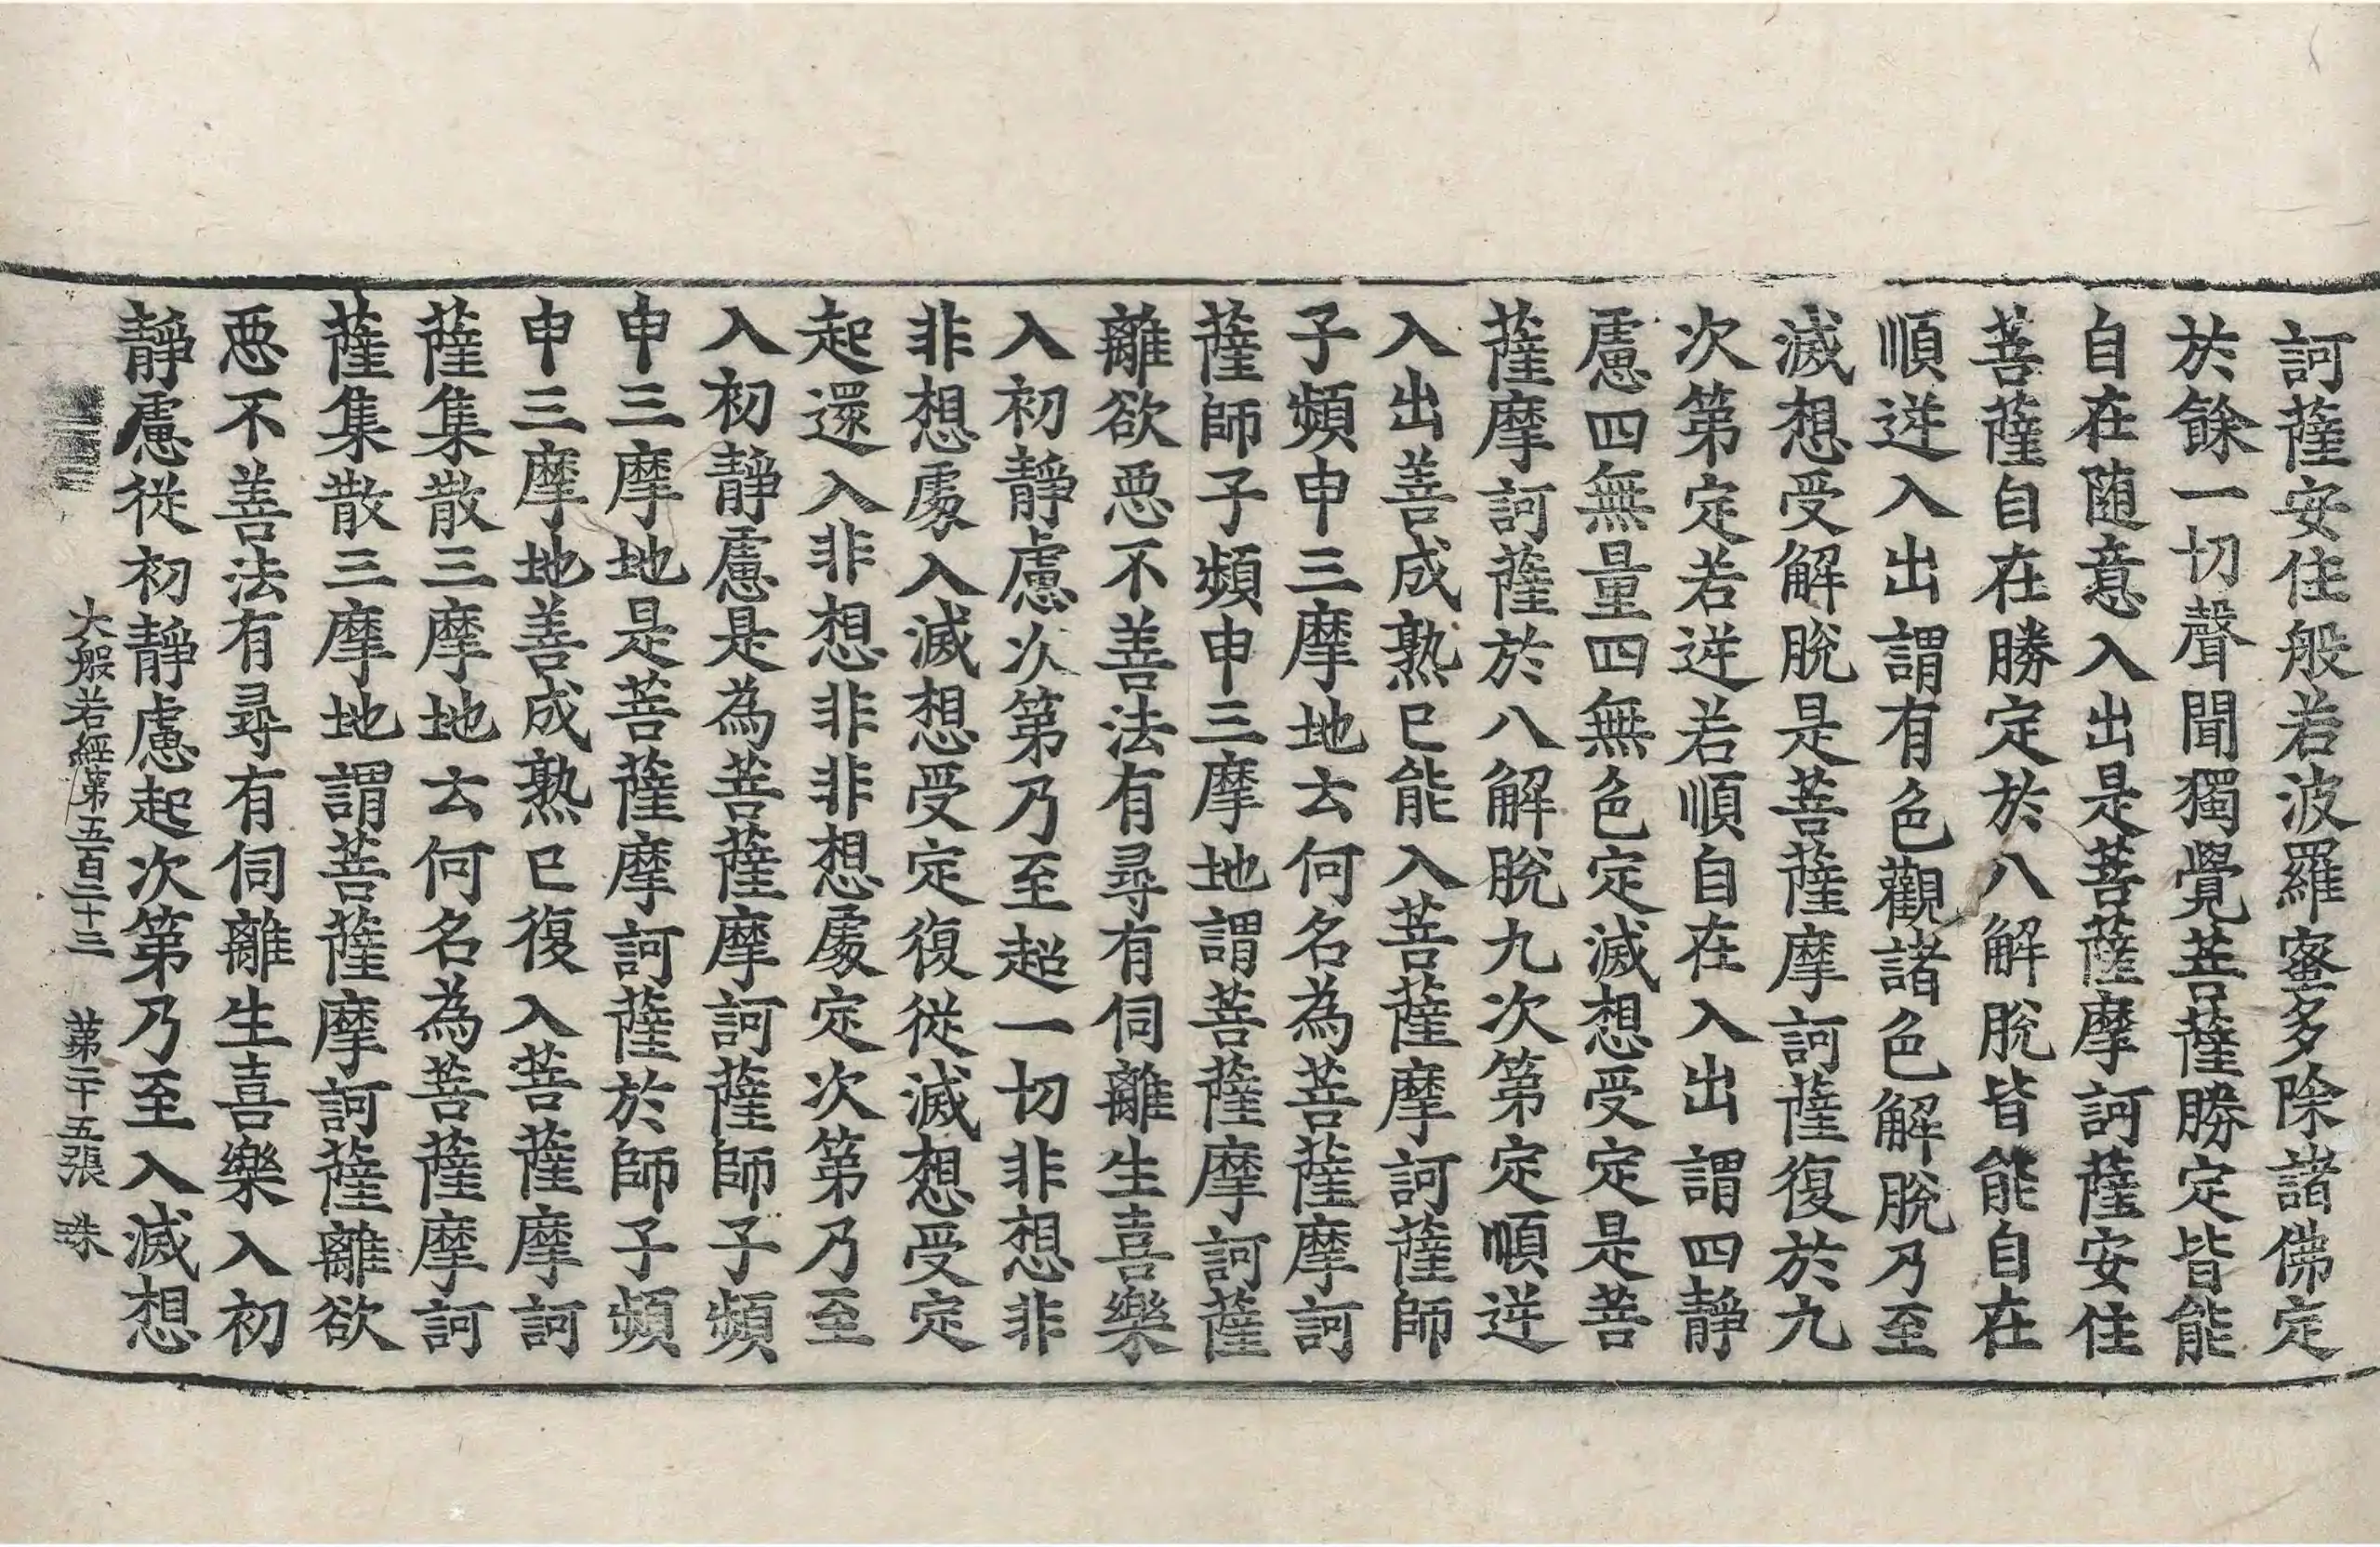 訶薩安住般若波羅蜜多除諸佛定
於餘一切聲聞獨覺菩薩勝定皆能
自在隨意入出是菩薩摩訶薩安住
菩薩自在勝定於八解脫皆能自在
順逆入出謂有色觀諸色解脫乃至
滅想受解脫是菩薩摩訶薩復於九
次第定若逆若順自在入出謂四靜
慮四無量四無色定滅想受定是菩
薩摩訶薩於八解脫九次第定順逆
入出善成熟已能入菩薩摩訶薩師
子頻申三摩地云何名為菩薩摩訶
薩師子頻申三摩地謂菩薩摩訶薩
離欲惡不善法有尋有伺離生喜樂
入初靜慮次第乃至超一切非想非
非想處入滅想受定復從滅想受定
起還入非想非非想處定次第乃至
入初靜慮是為菩薩摩訶薩師子頻
申三摩地是菩薩摩訶薩於師子頻
申三摩地善成熟已復入菩薩摩訶
薩集散三摩地云何名為菩薩摩訶
薩集散三摩地謂菩薩摩訶薩離欲
惡不善法有尋有伺離生喜樂入初
靜慮從初靜慮起次第乃至入滅想
大般若經第五百二十三 第二十五張 珠